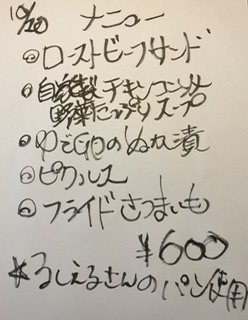 10/20 メニュー
◎ローストビーフサンド
◎自家製チキンコンソメ
野菜たっぷりスープ
◎ゆで卵のぬか漬
◎ピクルス
◎フライドさつまいも
¥600
*るしえるさんのパン使用